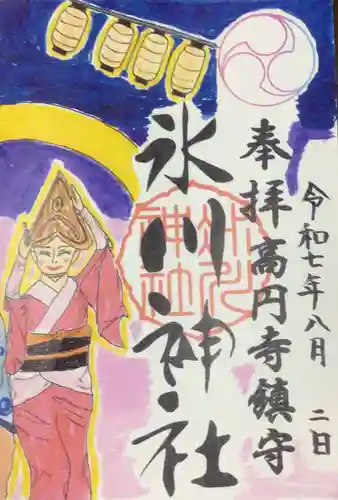 令和七年八月二日
奉拝高円寺鎮守
氷川神社
氷川
神社